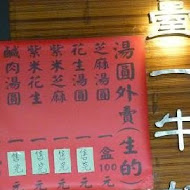 湯圓外賣(生的)
芝麻湯圓 一盒100元
花生湯圓 一 售完 元
紫米芝麻 一 售完 元
紫米花生 一 售完 元
鹹肉湯圓 一
疊一牛